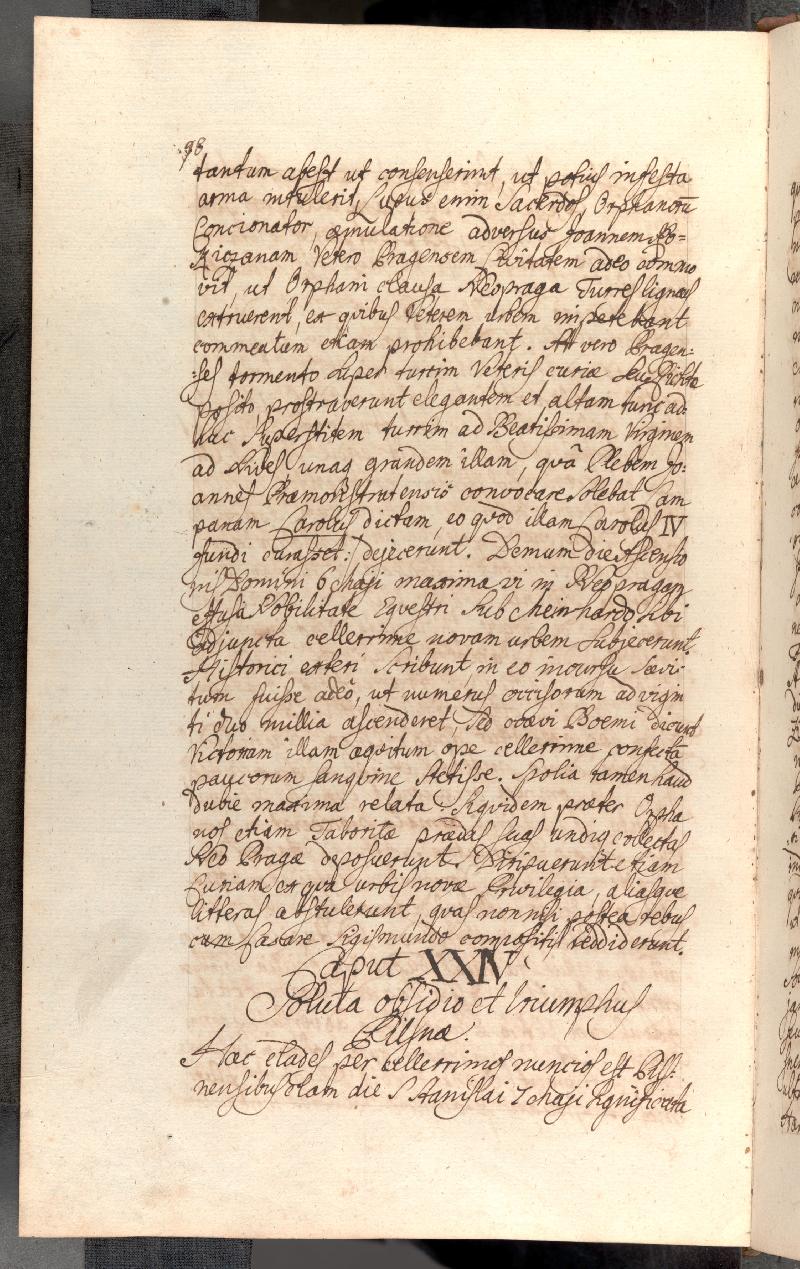 98
tantum abest ut consenserint, ut potius infesta
arma intulerit, Lupus enim Sacerdos Orphanorū
Concionator, æmulatione adversus Joannem Ro=
kiczanam Vetero Pragensem Civitatem adeo commo
vit, ut Orphani clausa Neopraga Turres ligneas
extruerent, ex quibus Veterem urbem impetebant
commeatum etiam prohibebant. At vero Pragen=
:ses tormento super turrim Veteris curiæ
posito prostraverunt elegantem et altam tunc ad
huc superstitem turrim ad Beatissimam Virginem
ad Nives unaq grandem illam, quâ Plebem Jo:
annes Præmonstratensis convocare solebat Cam
panam Carolus dictam, eo quod illam Carolus IV
fundi curasset:/ dejecerunt. Demum die Ascensio
nis Domini 6 Maji maxima vi in Neopragam
effusa Nobilitate Equestri sub Meinhardo sibi
adjuncta cellerrime novam urbem subjecerunt.
Historici exteri scribunt, in eo incursu sævi=
tum fuisse adeò, ut numerus occisorum ad vigin
ti duo millia ascenderet, sed coævi Boemi dicunt
Victoriam illam equitum ope cellerrime confectā
paucorum sanguine stetisse. Spolia tamen haud
dubie maxima relata siquidem præter Orpha
nos etiam Taboritæ prædas suas undiq collectas
Neo Pragæ deposuerunt. Diripuerunt etiam
Curiam ex qua urbis novæ Privilegia, aliasque
litteras abstulerunt, quas non nisi postea rebus
cum Cæsare Sigismundo compositis reddiderunt.
Caput XXIV
Soluta obsidio et triumphus
Pilsnæ.
Hæc clades per cellerrimos nuncios est Pils=
nensibus olam die S Stanislai 7 Maji significata